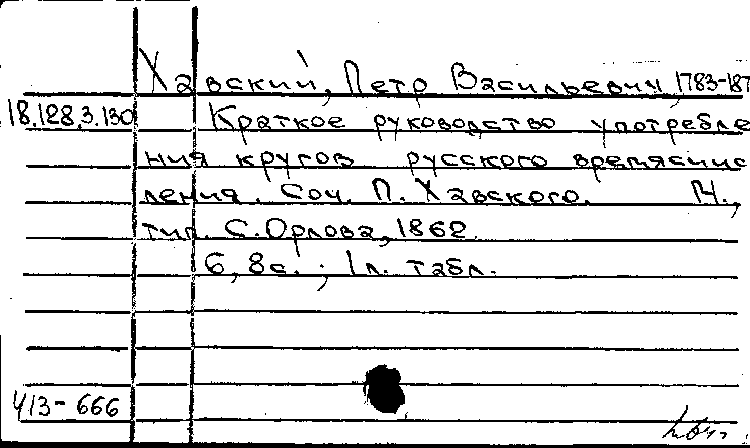 Хавский, Петр Васильевич, 1783-187
18.128.3.130 Краткое руководство употребле
ния кругов русского времясчис
ления. Соч. П. Хавского. М.,
тип. С. Орлова, 1862.
6, 8 с.; 1 л. табл.
413-666